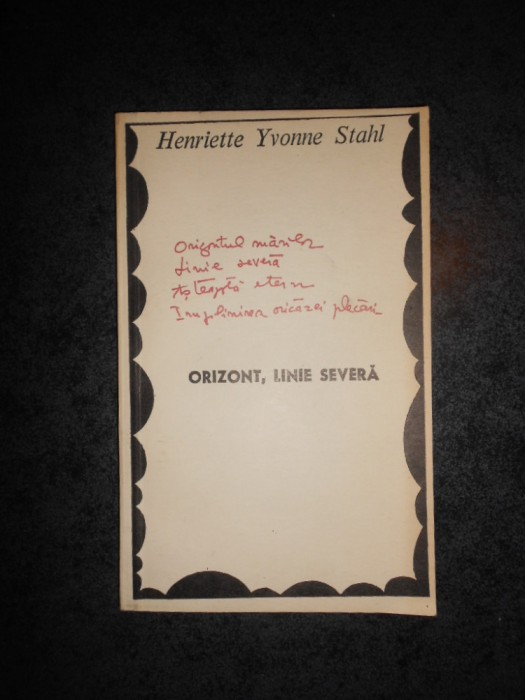 Henriette Yvonne Stahl
Orizontul mărilor
Linie severă
Așteaptă etern
Împlinirea oricărei plecări
ORIZONT, LINIE SEVERĂ